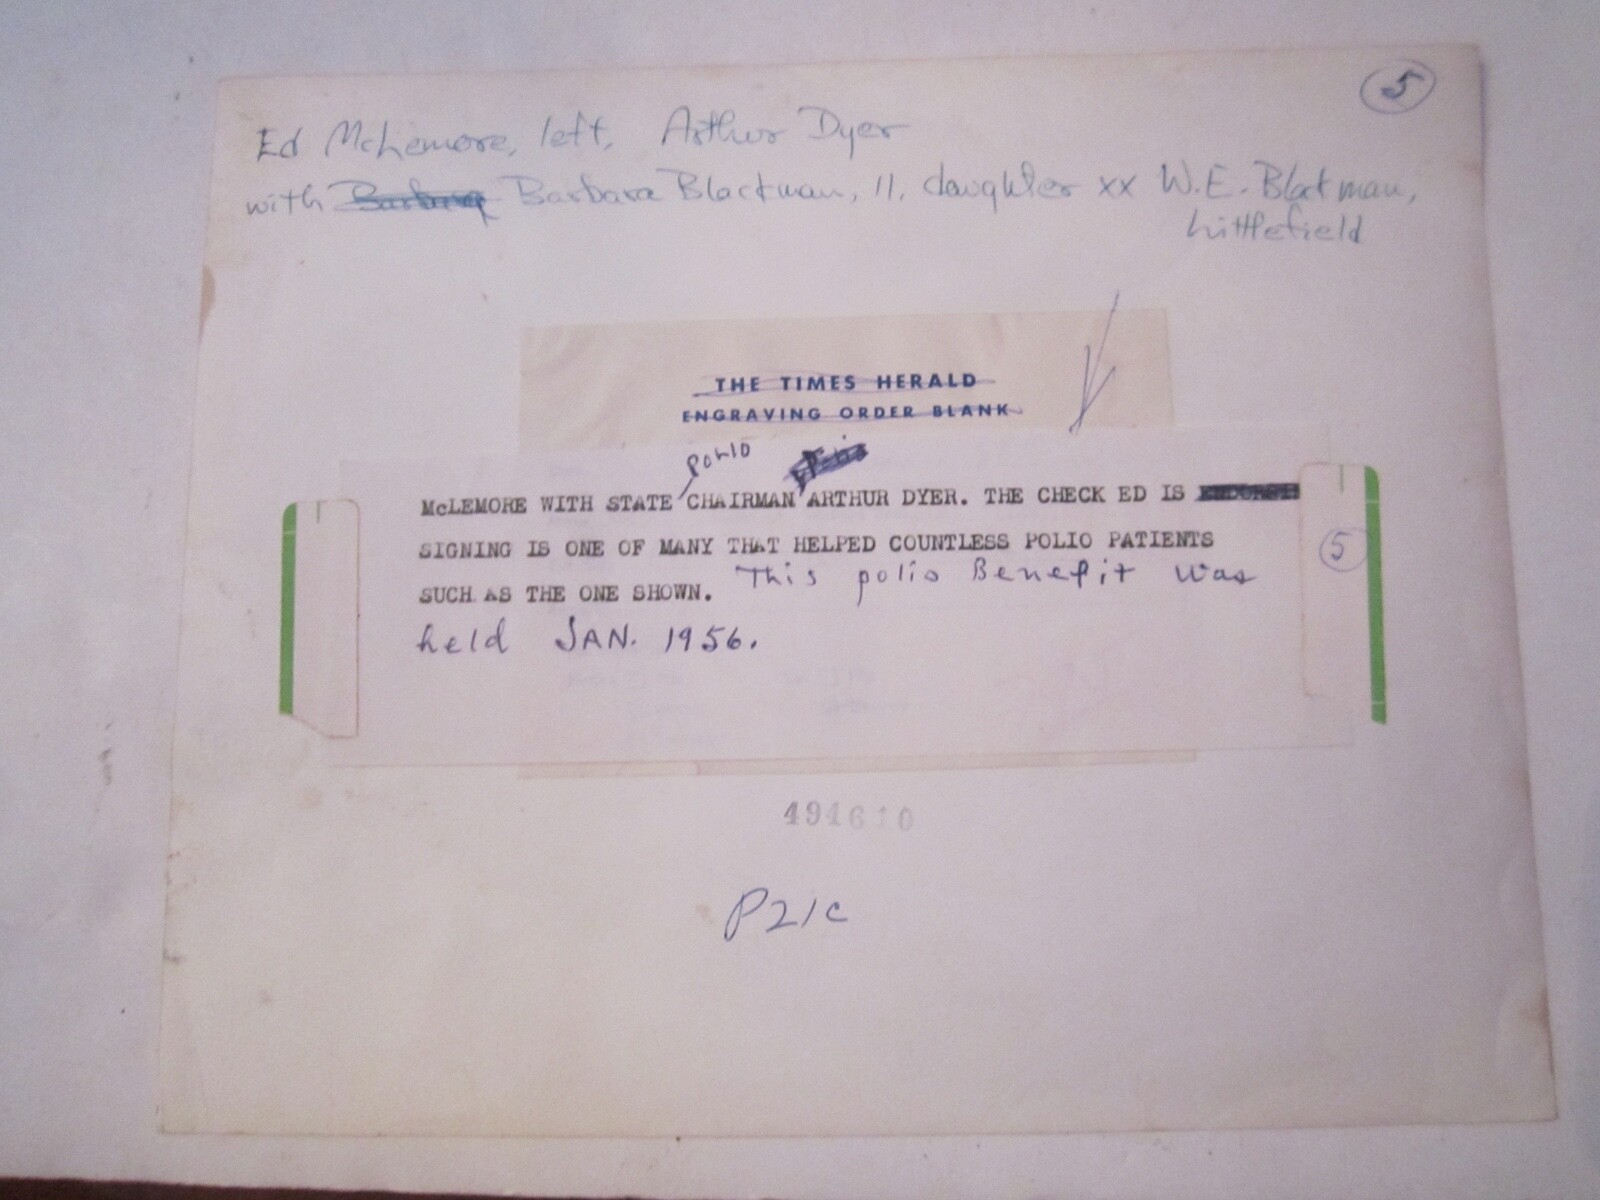 5
Ed McLemore, left, Arthur Dyer
with Barbara Barbara Blackman, 11, daughter xx W.E. Blackman,
Littlefield
THE TIMES HERALD
ENGRAVING ORDER BLANK
polio
McLEMORE WITH STATE CHAIRMAN ARTHUR DYER. THE CHECK ED IS
SIGNING IS ONE OF MANY THAT HELPED COUNTLESS POLIO PATIENTS
5
SUCH AS THE ONE SHOWN. This polio Benefit was
held JAN. 1956.
494610
P21c